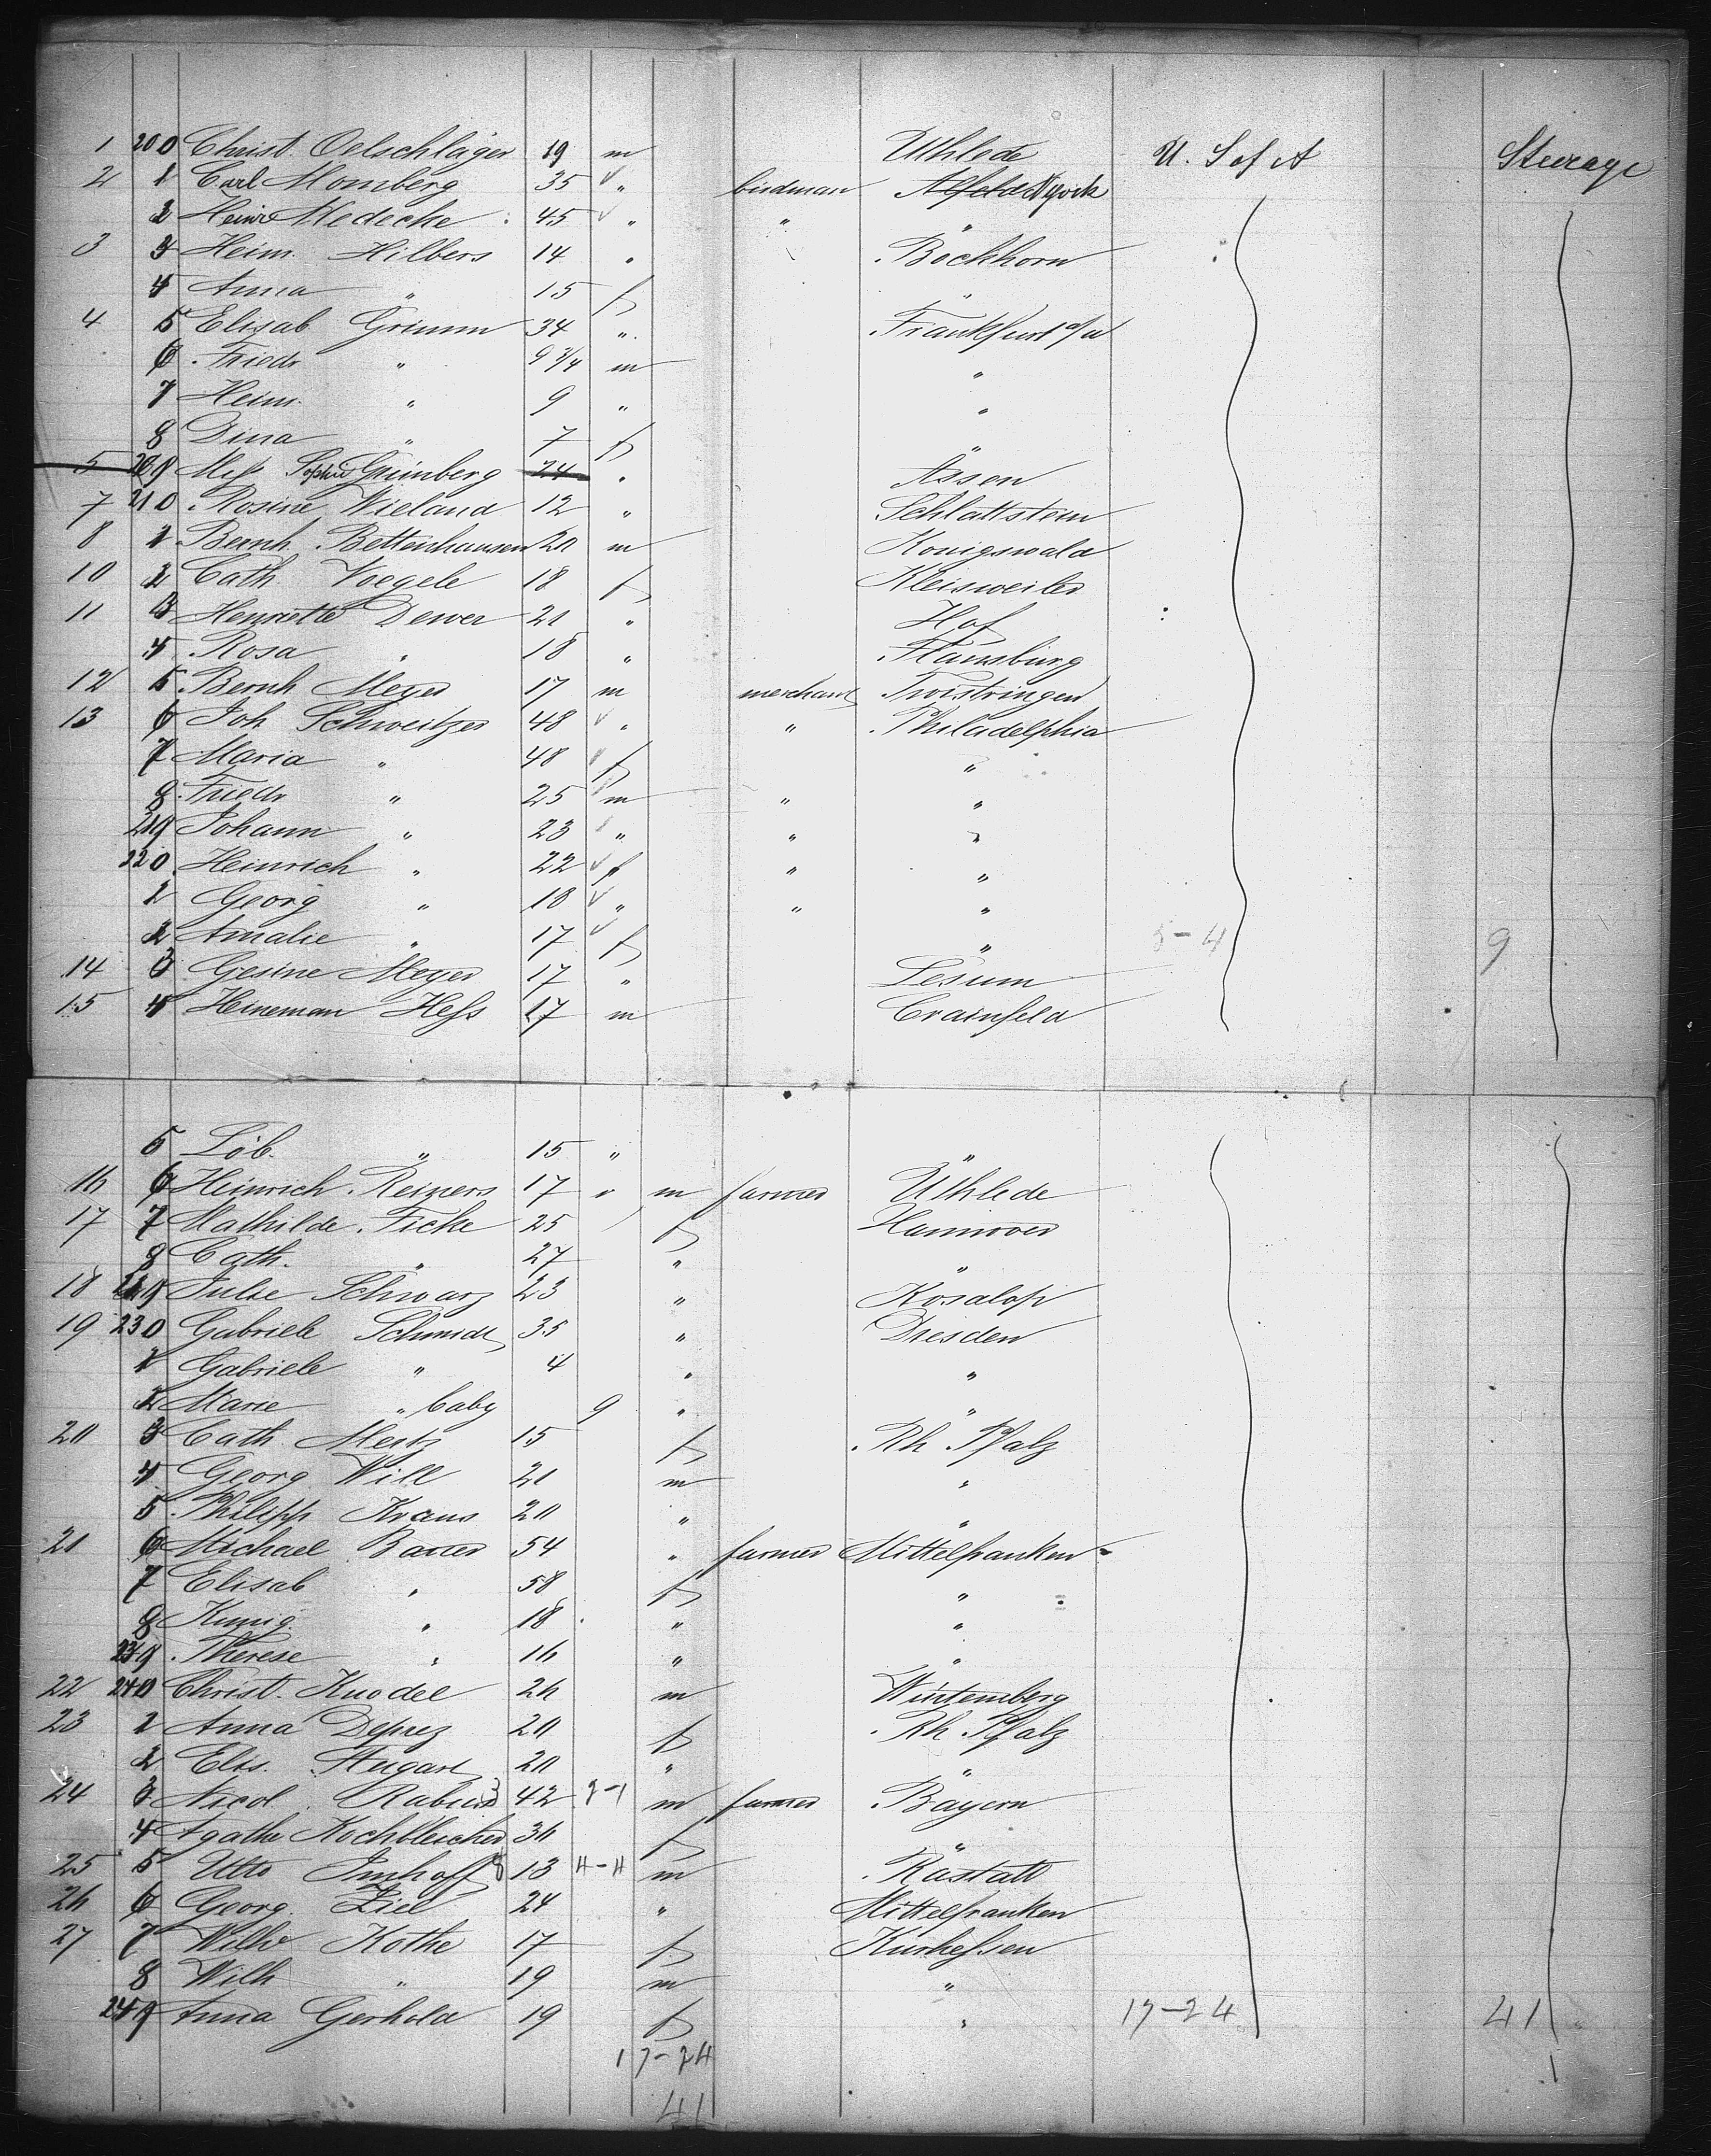 1 200 Christ. Oelschläger 19 m Uthlede U. S of A Steerage
2 1 Carl Momberg 35 " birdman Alfeld NYork
2 Heinr Medecke 45 " " "
3 3 Heinr. Hilbers 14 " Bockhorn
4 Anna " 15 f "
4 5 Elisab Grimm 34 " Frankfurt a/M
6 Friedr " 9 3/4 m "
7 Heinr. " 9 " "
8 Dina " 7 f "
5 209 Miss Sophie Grünberg 24 " Assen
7 210 Rosine Wieland 12 " Schlattstein
8 1 Bernh. Bettenhausen 20 m Konigswald
10 2 Cath. Voegele 18 f Kleisweiler
11 3 Henriette Dewer 21 " Hof
4 Rosa " 18 " Flansburg
12 5 Bernh Meyer 17 m merchant Twistringen
13 6 Joh Schweitzer 48 " " Philadelphia
7 Maria " 48 f "
8 Friedr " 25 m " "
219 Johann " 23 " " "
220 Heinrich " 22 f " "
1 Georg " 18 " " "
2 Amalie " 17 f " 5-4 9
14 3 Gesine Meyer 17 " Lesum
15 4 Heineman Hess 17 m Crainfeld
5 Löb. " 15 " "
16 6 Heinrich Reiners 17 m farmer Uthlede
17 7 Mathilde Ficke 25 f Hannover
8 Cath. " 27 " "
18 229 Julie Schwarz 23 " Kosalop
19 230 Gabriele Schmidt 35 " Dresden
1 Gabriele " 4 " "
2 Marie " baby 9 " "
20 3 Cath. Mertz 15 f Rh Pfalz
4 Georg Will 21 m "
5 Philipp Kraus 20 " "
21 6 Michael Bauer 54 " farmer Mittelfranken
7 Elisab " 58 f "
8 Kunig. " 18 " "
239 Therese " 16 " "
22 240 Christ. Knodel 26 m Würtemberg
23 1 Anna Deprez 20 f Rh Pfalz
2 Elis. Hugart 20 " "
24 3 Nicol. 42 2-1 m farmer Bayern
4 Agathe Kochbleicher 36 f "
25 5 Otto Imhoff 13 4-4 m Rastatt
26 6 Georg Ziel 24 " Mittelfranken
27 7 Wilhe Kothe 17 f Kurhessen
8 Wilh " 19 m "
249 Anna Gerhold 19 f " 17-24 41
17-24
41